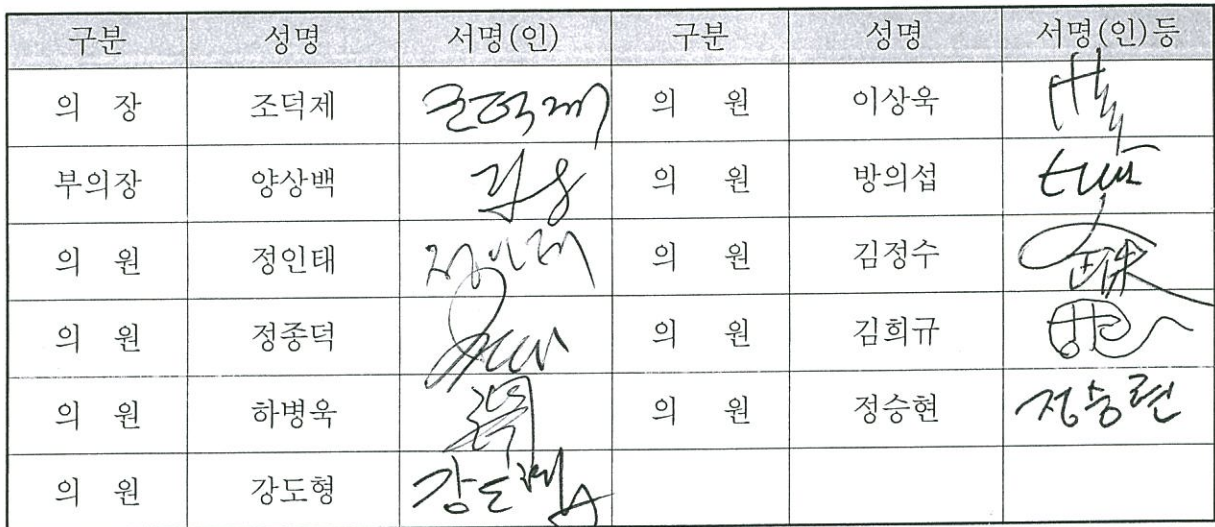 구분 성명 서명(인) 구분 성명 서명(인)등
의 장 조덕제 조덕제 의 원 이상욱
부의장 양상백 의 원 방의섭
의 원 정인태 정인태 의 원 김정수
의 원 정종덕 의 원 김희규
의 원 하병욱 의 원 정승현 정승현
의 원 강도형 강도형